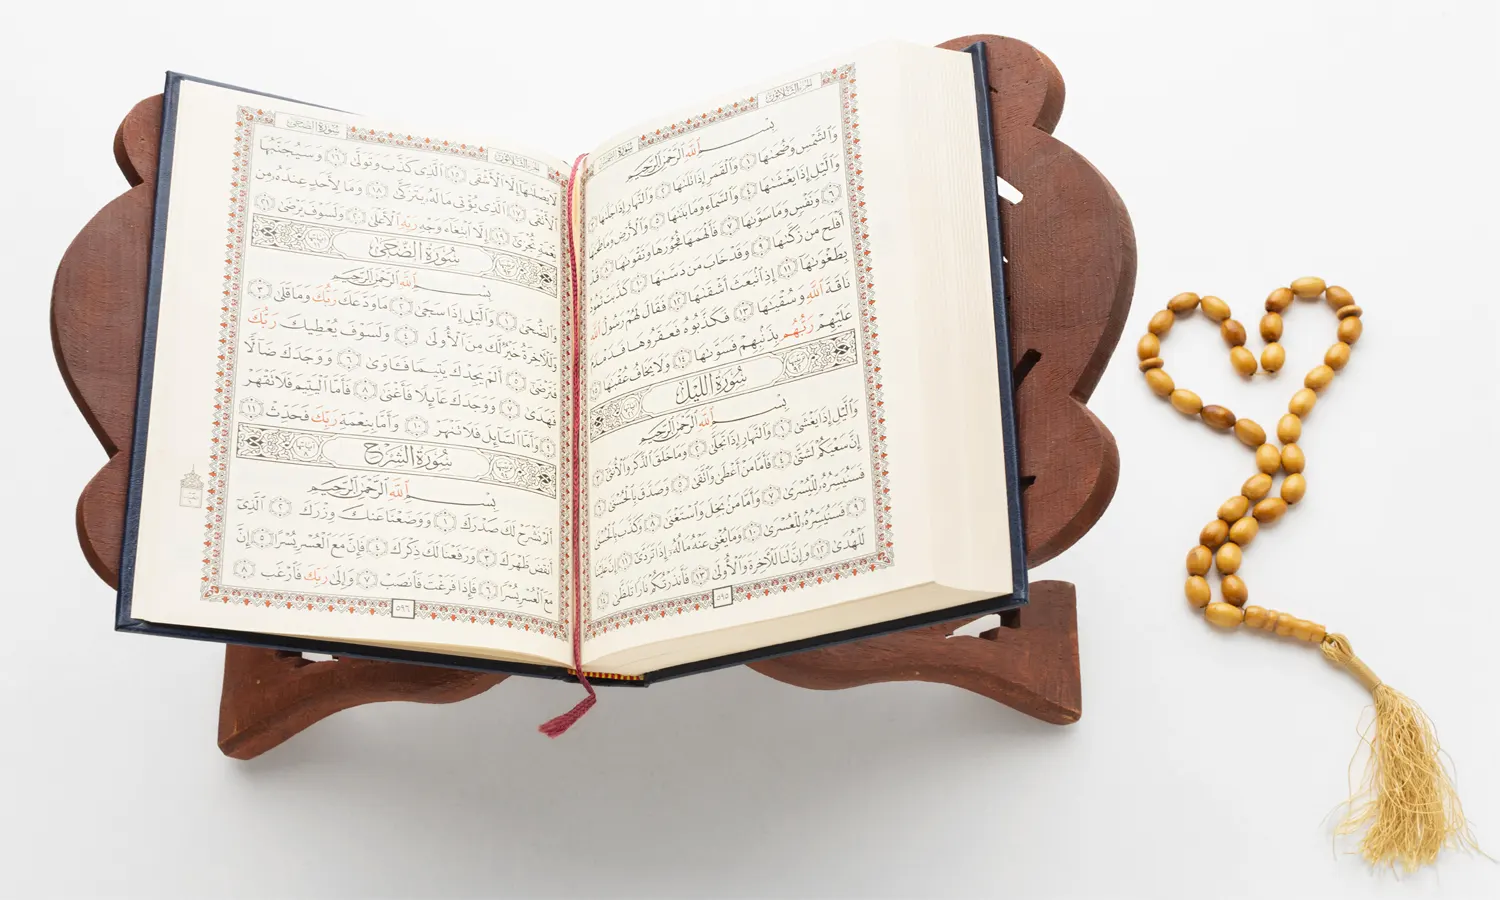 الجزء الثلاثون
سورة الشمس
بِسْمِ ٱللَّهِ ٱلرَّحْمَٰنِ ٱلرَّحِيمِ
وَٱلشَّمْسِ وَضُحَىٰهَا ١ وَٱلْقَمَرِ إِذَا تَلَىٰهَا ٢ وَٱلنَّهَارِ إِذَا جَلَّىٰهَا ٣
وَٱلَّيْلِ إِذَا يَغْشَىٰهَا ٤ وَٱلسَّمَآءِ وَمَا بَنَىٰهَا ٥ وَٱلْأَرْضِ وَمَا طَحَىٰهَا
٦ وَنَفْسٍ وَمَا سَوَّىٰهَا ٧ فَأَلْهَمَهَا فُجُورَهَا وَتَقْوَىٰهَا ٨ قَدْ
أَفْلَحَ مَن زَكَّىٰهَا ٩ وَقَدْ خَابَ مَن دَسَّىٰهَا ١٠ كَذَّبَتْ ثَمُودُ
بِطَغْوَىٰهَآ ١١ إِذِ ٱنۢبَعَثَ أَشْقَىٰهَا ١٢ فَقَالَ لَهُمْ رَسُولُ ٱللَّهِ
نَاقَةَ ٱللَّهِ وَسُقْيَٰهَا ١٣ فَكَذَّبُوهُ فَعَقَرُوهَا فَدَمْدَمَ
عَلَيْهِمْ رَبُّهُم بِذَنۢبِهِمْ فَسَوَّىٰهَا ١٤ وَلَا يَخَافُ عُقْبَٰهَا ١٥
سُورَةُ اللَّيْلِ
بِسْمِ ٱللَّهِ ٱلرَّحْمَٰنِ ٱلرَّحِيمِ
وَٱلَّيْلِ إِذَا يَغْشَىٰ ١ وَٱلنَّهَارِ إِذَا تَجَلَّىٰ ٢ وَمَا خَلَقَ ٱلذَّكَرَ وَٱلْأُنثَىٰٓ ٣
إِنَّ سَعْيَكُمْ لَشَتَّىٰ ٤ فَأَمَّا مَنْ أَعْطَىٰ وَٱتَّقَىٰ ٥ وَصَدَّقَ بِٱلْحُسْنَىٰ ٦
فَسَنُيَسِّرُهُۥ لِلْيُسْرَىٰ ٧ وَأَمَّا مَنۢ بَخِلَ وَٱسْتَغْنَىٰ ٨ وَكَذَّبَ بِٱلْحُسْنَىٰ
٩ فَسَنُيَسِّرُهُۥ لِلْعُسْرَىٰ ١٠ وَمَا يُغْنِى عَنْهُ مَالُهُۥٓ إِذَا تَرَدَّىٰٓ ١١ إِنَّ عَلَيْنَا
لَلْهُدَىٰ ١٢ وَإِنَّ لَنَا لَلْءَاخِرَةَ وَٱلْأُولَىٰ ١٣ فَأَنذَرْتُكُمْ نَارًا تَلَظَّىٰ ١٤
٥٩٥
الجزء الثلاثون
سورة الضحى
لَا يَصْلَىٰهَآ إِلَّا ٱلْأَشْقَى ١٥ ٱلَّذِى كَذَّبَ وَتَوَلَّىٰ ١٦ وَسَيُجَنَّبُهَا
ٱلْأَتْقَى ١٧ ٱلَّذِى يُؤْتِى مَالَهُۥ يَتَزَكَّىٰ ١٨ وَمَا لِأَحَدٍ عِندَهُۥ مِن
نِّعْمَةٍ تُجْزَىٰٓ ١٩ إِلَّا ٱبْتِغَآءَ وَجْهِ رَبِّهِ ٱلْأَعْلَىٰ ٢٠ وَلَسَوْفَ يَرْضَىٰ ٢١
سُورَةُ الضُّحَىٰ
بِسْمِ ٱللَّهِ ٱلرَّحْمَٰنِ ٱلرَّحِيمِ
وَٱلضُّحَىٰ ١ وَٱلَّيْلِ إِذَا سَجَىٰ ٢ مَا وَدَّعَكَ رَبُّكَ وَمَا قَلَىٰ ٣
وَلَلْءَاخِرَةُ خَيْرٌ لَّكَ مِنَ ٱلْأُولَىٰ ٤ وَلَسَوْفَ يُعْطِيكَ رَبُّكَ
فَتَرْضَىٰٓ ٥ أَلَمْ يَجِدْكَ يَتِيمًا فَـَٔاوَىٰ ٦ وَوَجَدَكَ ضَآلًّا
فَهَدَىٰ ٧ وَوَجَدَكَ عَآئِلًا فَأَغْنَىٰ ٨ فَأَمَّا ٱلْيَتِيمَ فَلَا تَقْهَرْ
٩ وَأَمَّا ٱلسَّآئِلَ فَلَا تَنْهَرْ ١٠ وَأَمَّا بِنِعْمَةِ رَبِّكَ فَحَدِّثْ ١١
سُورَةُ الشَّرْحِ
بِسْمِ ٱللَّهِ ٱلرَّحْمَٰنِ ٱلرَّحِيمِ
أَلَمْ نَشْرَحْ لَكَ صَدْرَكَ ١ وَوَضَعْنَا عَنكَ وِزْرَكَ ٢ ٱلَّذِىٓ
أَنقَضَ ظَهْرَكَ ٣ وَرَفَعْنَا لَكَ ذِكْرَكَ ٤ فَإِنَّ مَعَ ٱلْعُسْرِ يُسْرًا ٥ إِنَّ
مَعَ ٱلْعُسْرِ يُسْرًا ٦ فَإِذَا فَرَغْتَ فَٱنصَبْ ٧ وَإِلَىٰ رَبِّكَ فَٱرْغَب ٨
٥٩٦